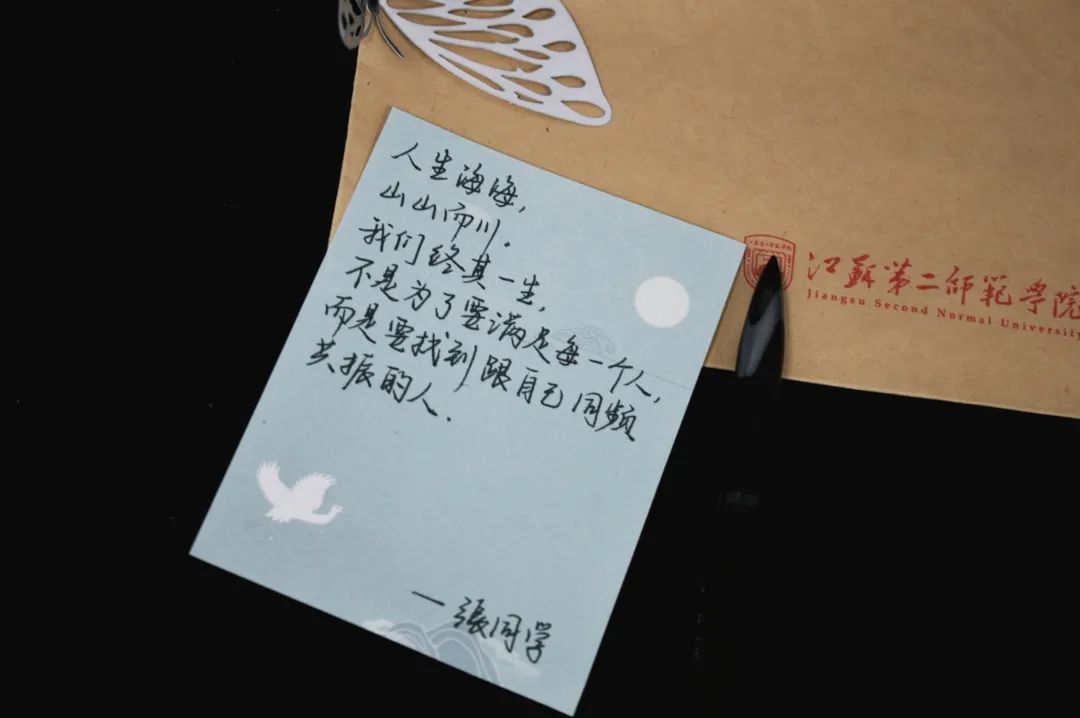 人生海海，
山山而川．
我们终其一生，
不是为了要满足每一个人，
而是要找到跟自己同频
共振的人．
一張同学
江蘇第二师范学院
Jiangsu Second Normal University